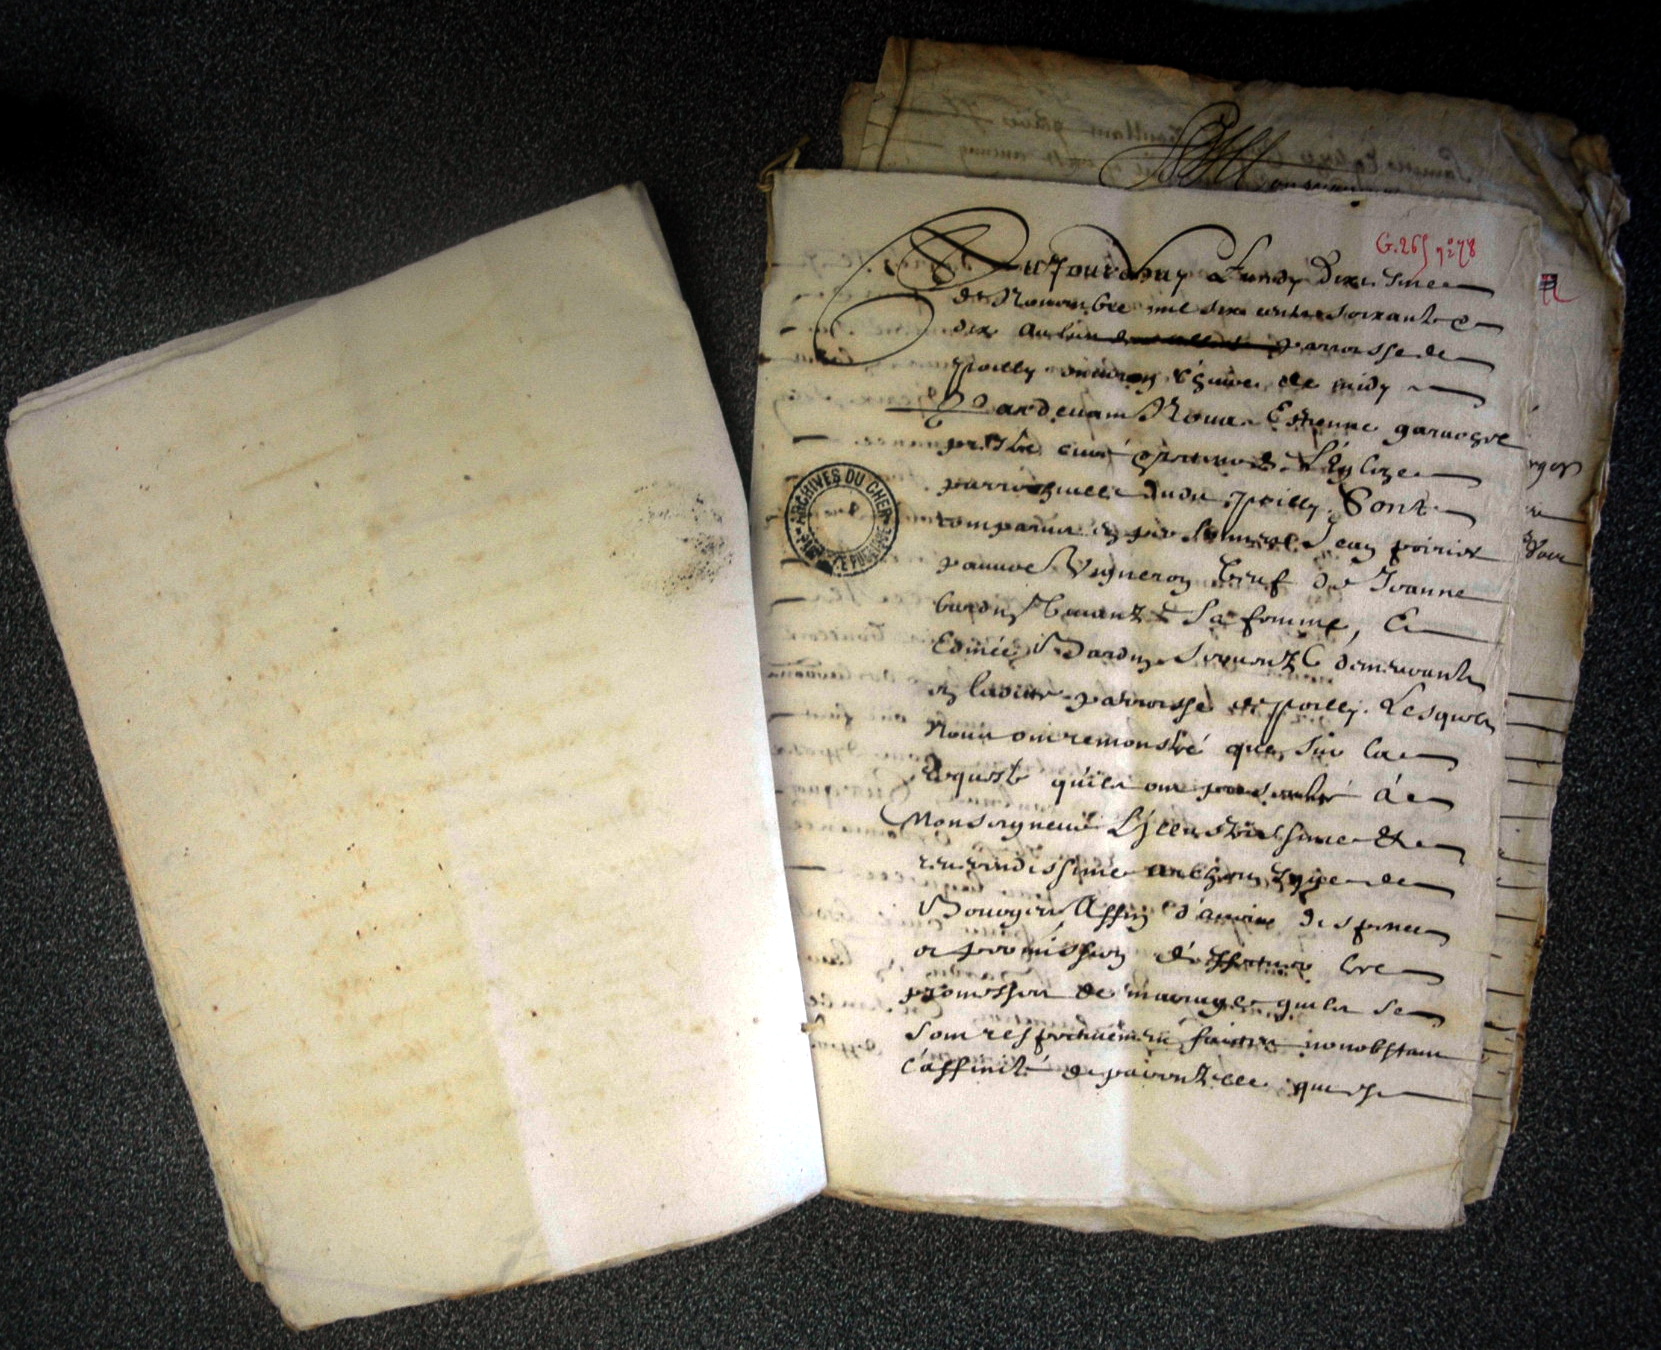 G. 265 n° 78
Aujourdhuy Lundy dixiesme
de Novembre mil six cents soixante &
dix au lieu parroisse de
Poilly environ l'heure de midy
Pardevant Nous Estienne
prestre curé de L'Eglize
parrochialle dudit Poilly. Sont
comparus en personnes Jean poirier
pauvre Vigneron Veuf de Jeanne
bardin vivante sa femme, Et
Edmée Bardin servante demeurants
en ladite parroisse de poilly. Lesquels
Nous ont remonstré que sur la
Requeste qu'ils ont presentée à
Monseigneur L'jllustrissime &
reverendissime archevesque de
Bourges Affin d'avoir dispence
et permission d' les
promesses de mariage quils se
sont respectivement faittes nonobstant
l'affinité & parentelle qui est
ARCHIVES DU CHER